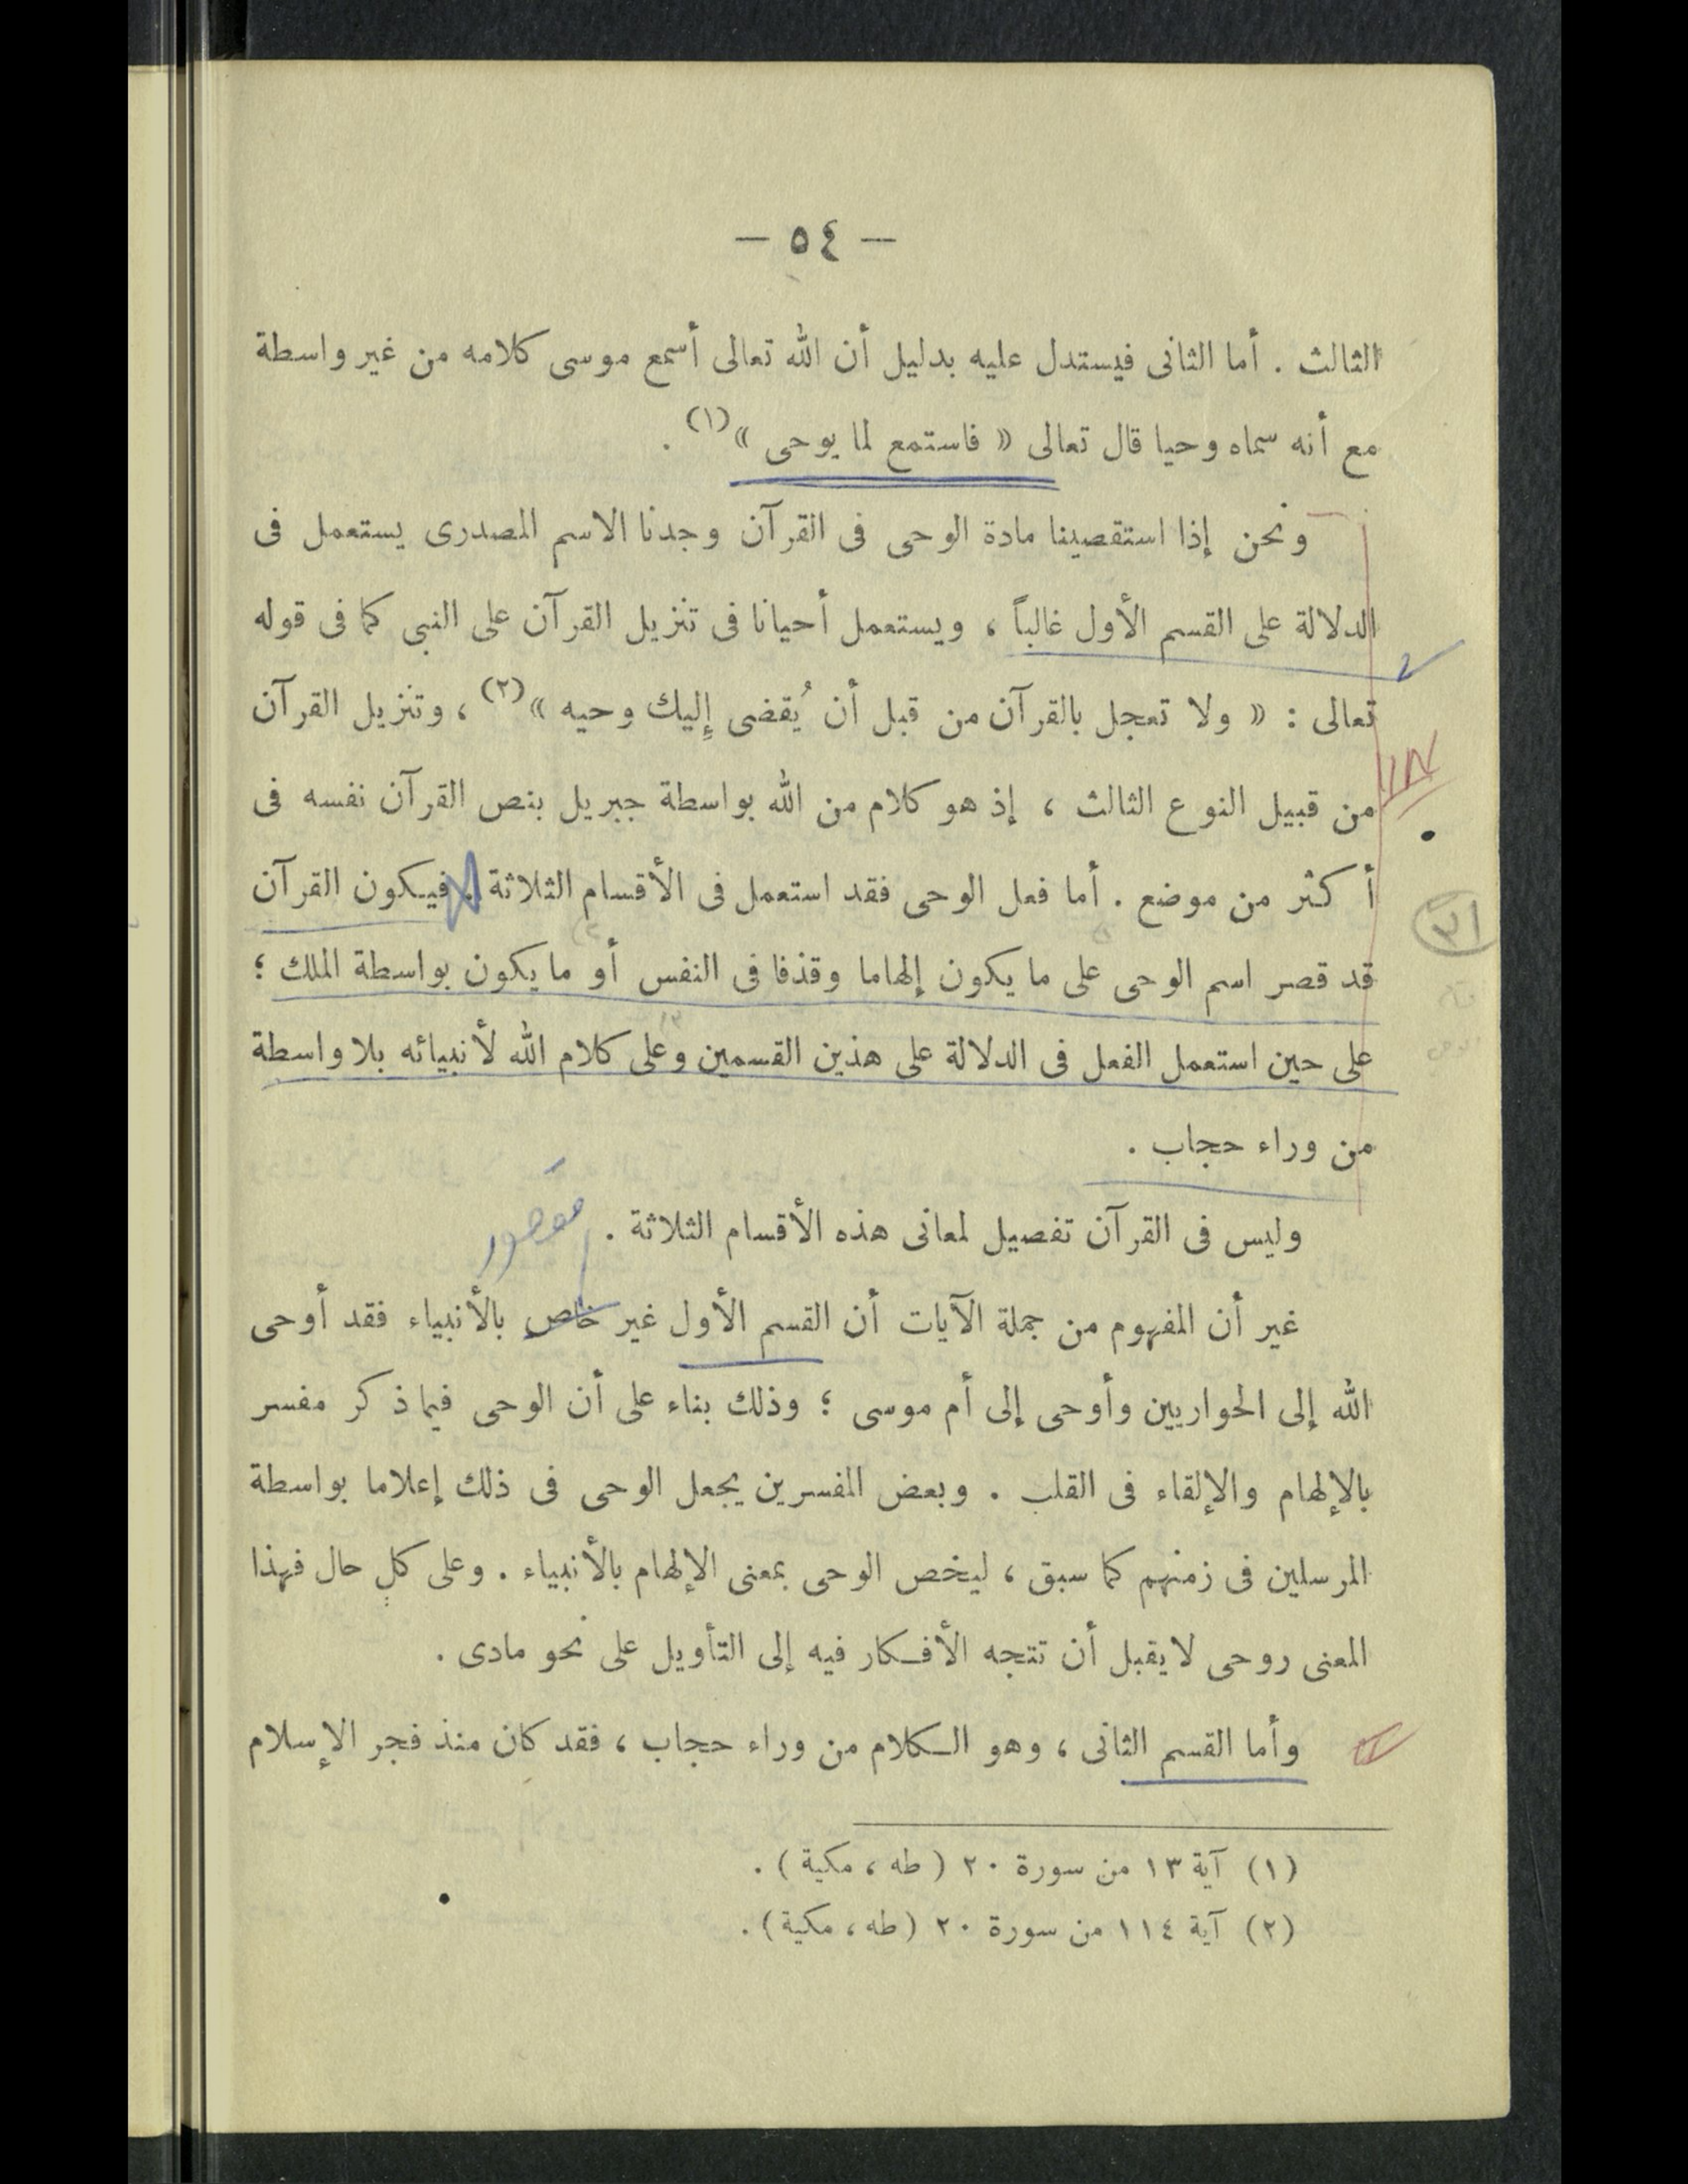 — ٥٤ —
الثالث . أما الثانى فيستدل عليه بدليل أن الله تعالى أسمع موسى كلامه من غير واسطة
مع أنه سماه وحيا قال تعالى « فاستمع لما يوحى »(١) .
ونحن إذا استقصينا مادة الوحى فى القرآن وجدنا الاسم المصدرى يستعمل فى
الدلالة على القسم الأول غالباً ، ويستعمل أحيانا فى تنزيل القرآن على النبى كما فى قوله
تعالى : « ولا تعجل بالقرآن من قبل أن يُقضى إليك وحيه »(٢) ، وتنزيل القرآن
من قبيل النوع الثالث ، إذ هو كلام من الله بواسطة جبريل بنص القرآن نفسه فى
أكثر من موضع . أما فعل الوحى فقد استعمل فى الأقسام الثلاثة . فيكون القرآن
قد قصر اسم الوحى على ما يكون إلهاما وقذفا فى النفس أو ما يكون بواسطة الملك ؛
على حين استعمل الفعل فى الدلالة على هذين القسمين وعلى كلام الله لأنبيائه بلا واسطة
من وراء حجاب .
وليس فى القرآن تفصيل لمعانى هذه الأقسام الثلاثة .
مقصور
غير أن المفهوم من جملة الآيات أن القسم الأول غير خاص بالأنبياء فقد أوحى
الله إلى الحواريين وأوحى إلى أم موسى ؛ وذلك بناء على أن الوحى فيما ذكر مفسر
بالإلهام والإلقاء فى القلب . وبعض المفسرين يجعل الوحى فى ذلك إعلاما بواسطة
المرسلين فى زمنهم كما سبق ، ليخص الوحى بمعنى الإلهام بالأنبياء . وعلى كلٍ حال فهذا
المعنى روحى لا يقبل أن تتجه الأفكار فيه إلى التأويل على نحو مادى .
وأما القسم الثانى ، وهو الكلام من وراء حجاب ، فقد كان منذ فجر الإسلام
(١) آية ١٣ من سورة ٢٠ ( طه ، مكية ) .
(٢) آية ١١٤ من سورة ٢٠ (طه ، مكية) .